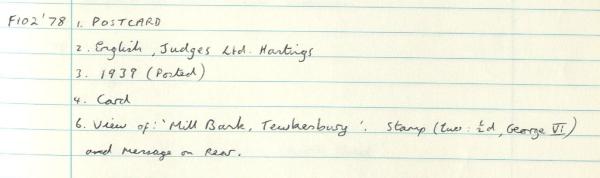 F102'78 1. POSTCARD
2. English, Judges Ltd. Hastings
3. 1938 (Posted)
4. Card
6. View of: 'Mill Bank, Tewkesbury'. Stamp (two: ½d, George VI)
and message on rear.